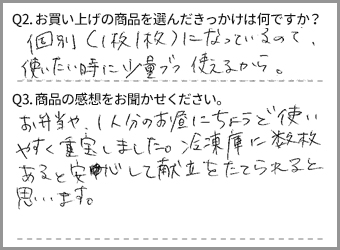 Q2.お買い上げの商品を選んだきっかけは何ですか？
個別（1枚1枚）になっているので、
使いたい時に少量ずつ使えるから。
Q3.商品の感想をお聞かせください。
お弁当や、1人分のお昼にちょうど使い
やすく重宝しました。冷凍庫に数枚
あると安心して献立をたてられると
思います。